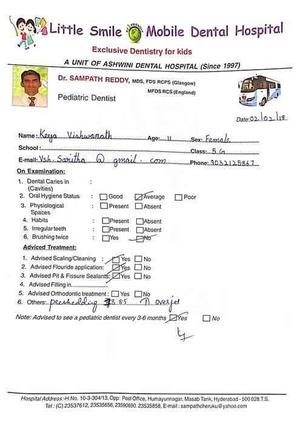 Little Smile Mobile Dental Hospital
Exclusive Dentistry for kids
A UNIT OF ASHWINI DENTAL HOSPITAL (Since 1997)
Dr. SAMPATH REDDY, MDS, FDS RCPS (Glasgow)
MFDS RCS (England)
Pediatric Dentist
Date: 02/02/18
Name: Keya Vishwanath Age: 11 Sex: Female
School: Class: 5G
E-mail: Vsh.Saritha @ gmail.com Phone:
On Examination:
1. Dental Caries in (Cavities)
2. Oral Hygiene Status : Good Average Poor
3. Physiological Spaces : Present Absent
4. Habits : Present Absent
5. Irregular teeth : Present Absent
6. Brushing twice : Yes No
Adviced Treatment:
1. Advised Scaling/Cleaning : Yes No
2. Advised Flouride application : Yes No
3. Advised Pit & Fissure Sealants : Yes No
4. Advised Filling in
5. Advised Orthodontic treatment : Yes No
6. Others: preshedding 85 overjet
Note: Advised to see a pediatric dentist every 3-6 months Yes No
Hospital Address -H.No. 10-3-304/13, Opp: Post Office, Humayunnagar, Masab Tank, Hyderabad - 500 028.T.S.
Tel : (C) 23537612, 23535656, 23590690, 23535858, E-mail : sampathcheruku@yahoo.com